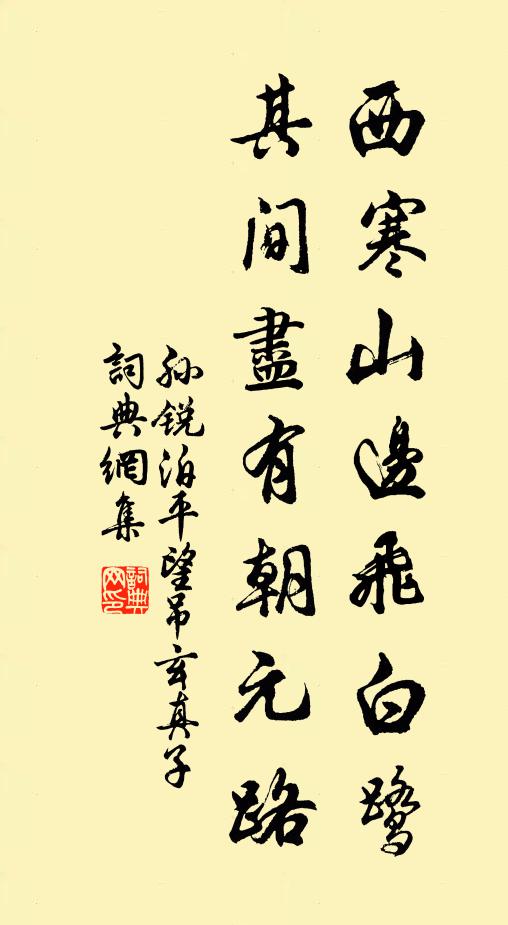 西寒山邊飛白鷺
其間盡有朝元路
孙銳泊平望吊玄真子
詞典網集
詞典网印